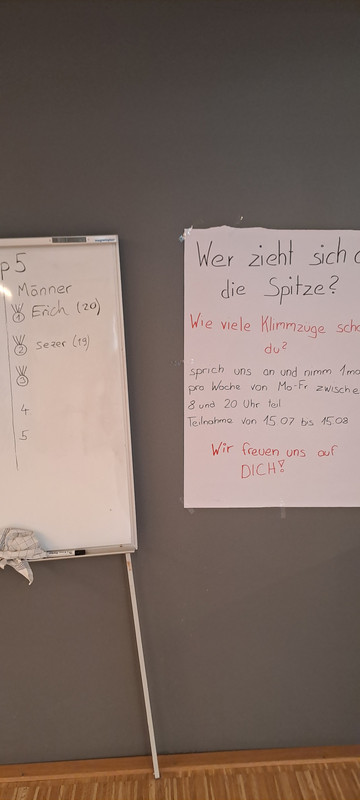 p 5
Männer
1 Erich (20)
2 sezer (19)
3
4
5
Wer zieht sich a
die Spitze?
Wie viele Klimmzüge scha
du?
sprich uns an und nimm 1ma
pro Woche von Mo-Fr zwische
8 und 20 Uhr teil
Teilnahme von 15.07 bis 15.08
Wir freuen uns auf
DICH!